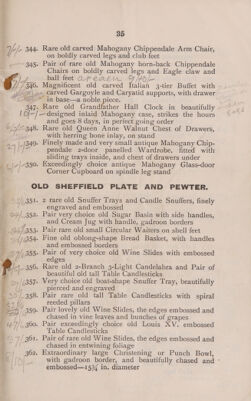 35
344. Rare old carved Mahogany Chippendale Arm Chair,
on boldly carved legs and club feet
345. Pair of rare old Mahogany horn-back Chippendale
Chairs on boldly carved legs and Eagle claw and
ball feet
346. Magnificent old carved Italian 3-tier Buffet with
carved Gargoyle and Caryatid supports, with drawer
in base—a noble piece.
347. Rare old Grandfather Hall Clock in beautifully
designed inlaid Mahogany case, strikes the hours
and goes 8 days, in perfect going order
348. Rare old Queen Anne Walnut Chest of Drawers,
with herring bone inlay, on stand
349. Finely made and very small antique Mahogany Chip-
pendale 2-door panelled Wardrobe, fitted with
sliding trays inside, and chest of drawers under
350. Exceedingly choice antique Mahogany Glass-door
Corner Cupboard on spindle leg stand
OLD SHEFFIELD PLATE AND PEWTER.
351. 2 rare old Snuffer Trays and Candle Snuffers, finely
engraved and embossed
352. Pair very choice old Sugar Basin with side handles,
and Cream Jug with handle, gadroon borders
353. Pair rare old small Circular Waiters on shell feet
354. Fine old oblong-shape Bread Basket, with handles
and embossed borders
355. Pair of very choice old Wine Slides with embossed
edges
356. Rare old 2-Branch 3-Light Candelabra and Pair of
beautiful old tall Table Candlesticks
357. Very choice old boat-shape Snuffer Tray, beautifully
pierced and engraved
358. Pair rare old tall Table Candlesticks with spiral
reeded pillars
359. Pair lovely old Wine Slides, the edges embossed and
chased in vine leaves and bunches of grapes
360. Pair exceedingly choice old Louis XV. embossed
Table Candlesticks
361. Pair of rare old Wine Slides, the edges embossed and
chased in entwining foliage
362. Extraordinary large Christening or Punch Bowl,
with gadroon border, and beautifully chased and
embossed—15¾ in. diameter